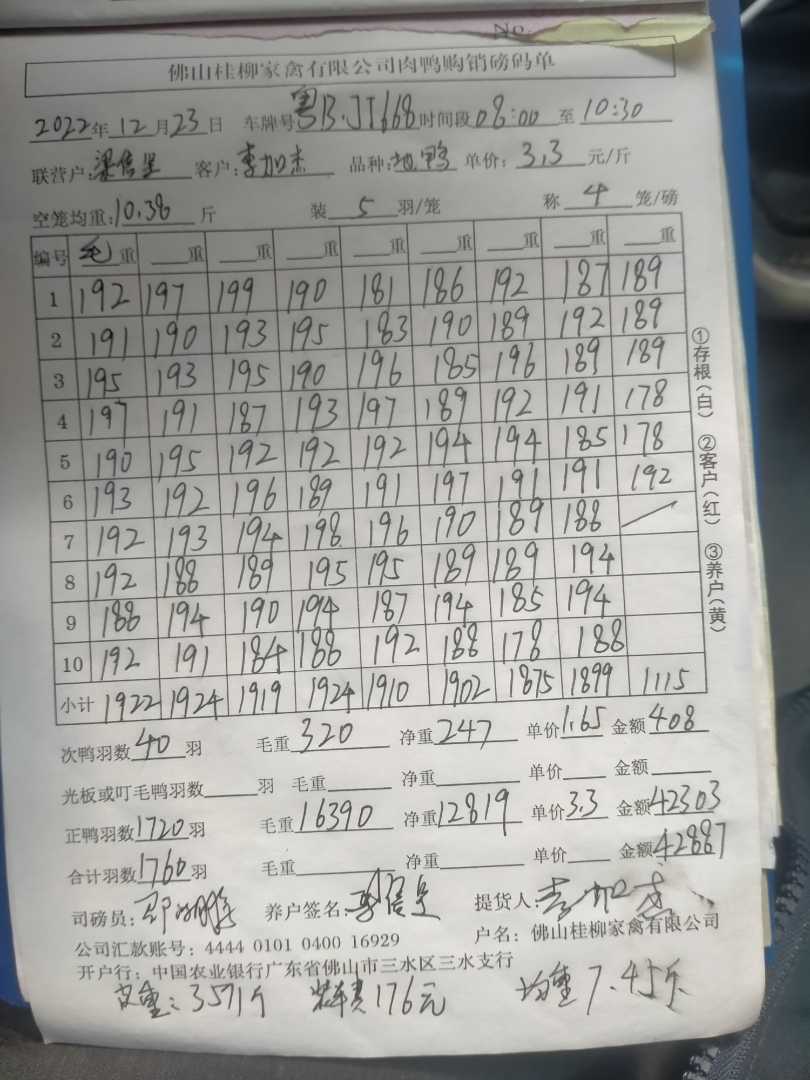 No.
佛山桂柳家禽有限公司肉鸭购销磅码单
2022年12月23日 车牌号粤B·JT668时间段08:00至10:30
联营户: 客户:李加杰 品种: 鸭 单价:3.3元/斤
空笼均重:10.38斤 装5羽/笼 称4笼/磅
编号 毛重 重 重 重 重 重 重 重 重
1 192 197 199 190 181 186 192 187 189
2 191 190 193 195 183 190 189 192 189
3 195 193 195 190 196 185 196 189 189
4 197 191 187 193 197 189 192 191 178
5 190 195 192 192 192 194 194 185 178
6 193 192 196 189 191 197 191 191 192
7 192 193 194 198 196 190 189 188
8 192 188 189 195 195 189 189 194
9 188 194 190 194 187 194 185 194
10 192 191 184 188 192 188 178 188
小计 1922 1924 1919 1924 1910 1902 1875 1899 1115
次鸭羽数40羽 毛重320 净重247 单价1.65 金额408
光板或叮毛鸭羽数 羽 毛重 净重 单价 金额
正鸭羽数1720羽 毛重16390 净重12819 单价3.3 金额42303
合计羽数1760羽 毛重 净重 单价 金额42887
司磅员: 养户签名: 提货人:李加杰
公司汇款账号: 4444 0101 0400 16929 户名: 佛山桂柳家禽有限公司
开户行: 中国农业银行广东省佛山市三水区三水支行
皮重:3571斤 装车费176元 均重7.45斤
①存根(白) ②客户(红) ③养户(黄)